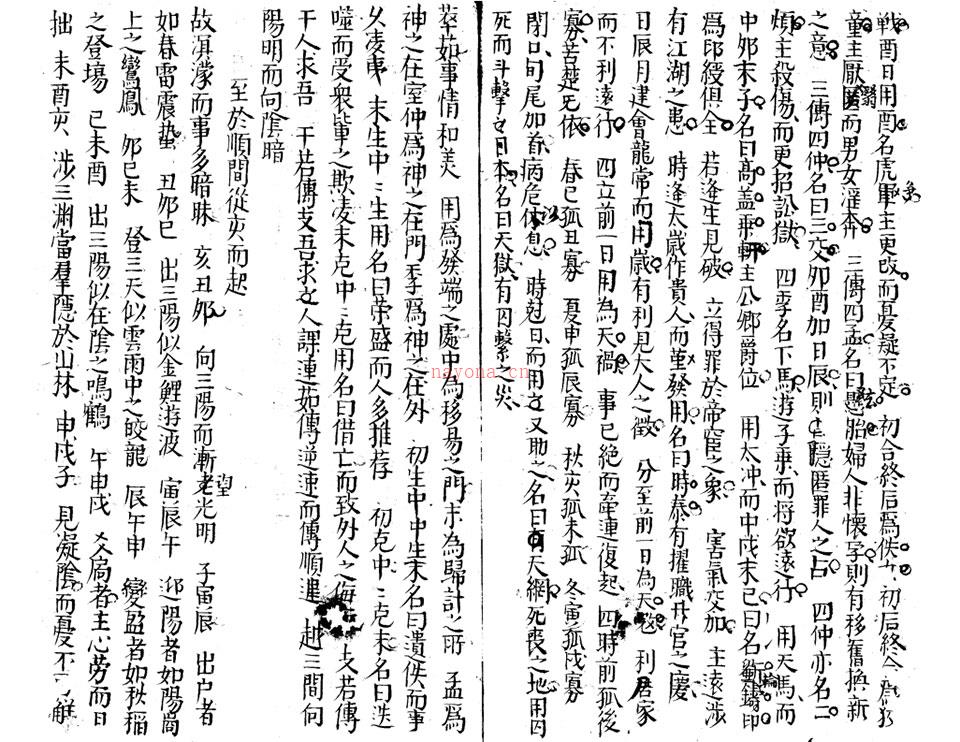 戦酉日用酉名虎 主更改而憂疑不定 初合終后爲佚 初后終合爲
童主厭匿而男女淫奔 三傳四孟名曰 胎婦人非懷孕則有移舊換新
之意 三傳四仲名曰三交夘酉加日辰則 隱匿罪人之占 四仲亦名二
煩主殺傷而更招訟獄 四季名下馬游子乘而將欲遠行 用天馬而
中夘末子名曰高盖乘軒主公卿爵位 用太冲而中戌末巳曰名 鑄印
爲印綬俱全 若逢生見破 立得罪於帝 之象 害氣交加 主遠涉
有江湖之患 時逢太歲作貴人而 發用名曰時泰有擢職升官之慶
日辰月建會龍常而用歲有利見大人之徵 分至前一日為天 利居家
而不利遠行 四立前一日用為天禍 事已絶而牽連復起 四時前孤後
寡苦楚无依 春巳孤丑寡 夏申孤辰寡 秋亥孤未 冬寅孤戌寡
閉口旬尾加首病危休息 時尅日而用又助之名曰 天網死喪之地用囚
死而斗擊 日本名曰天獄有囚繫之災
萃如事情和美 用爲發端之處中為移易之門末為歸計之所 孟爲
神之在室仲爲神之在門季爲神之在外 初生中中生末名曰 佚而事
久凌夷 末生中二生用名曰荣盛而人多推荐 初克中二克末名曰迭
噬而受衆軰之欺凌末克中二克用名曰借亡而致外人之侮 支若傳
干人求吾 干若傳支吾求 人 連茹傳逆連而傳順 越三間向
陽明而向陰暗
至於順間從亥而起
故溟濛而事多暗昧 亥丑夘 向三陽而漸 光明 子寅辰 出户者
如春雷震蛰 丑夘巳 出三陽似金鯉游波 寅辰午 迎陽者如陽
上之鸞鳳 夘巳未 登三天似雲雨中之蛟龍 辰午申 變盈者如秋稲
之登塲 巳未酉 出三陽似在陰之鳴鶴 午申戌 者主心勞而日
拙 未酉亥 涉三淵當羣隠於山林 申戌子 見凝陰而憂不 解
nayona.cn